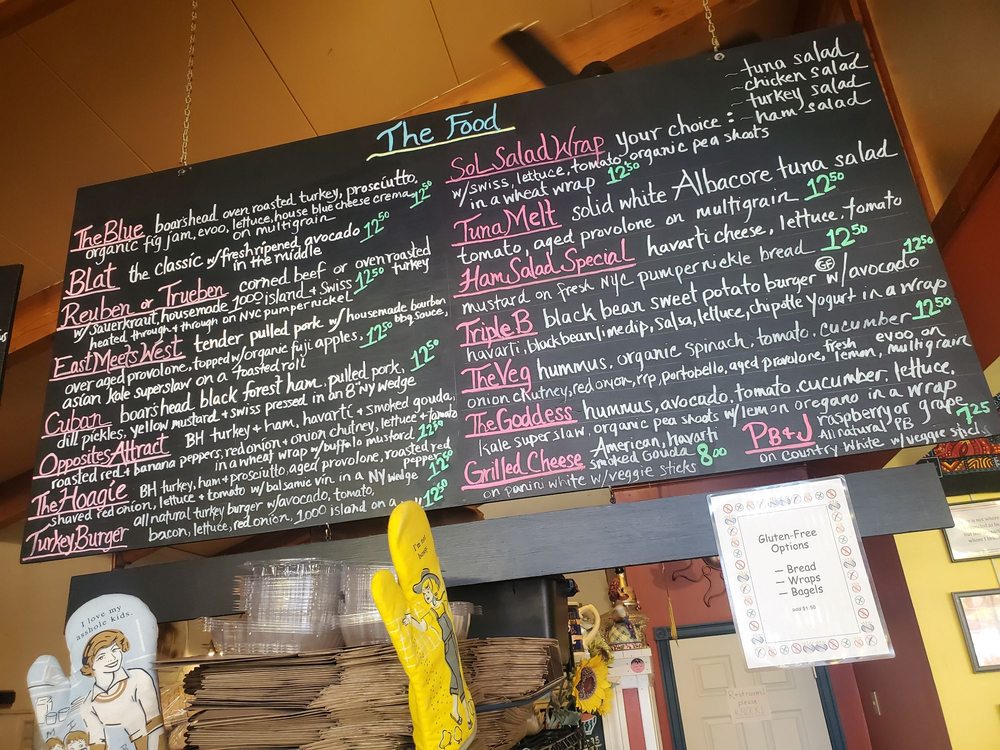 The Food
The Blue boarshead oven roasted turkey, prosciutto,
organic fig jam, evoo, lettuce, house blue cheese crema
on multigrain 12.50
Blat the classic w/ fresh ripened avocado
in the middle 12.50
Reuben or Trueben corned beef or oven roasted
turkey
w/ sauerkraut, housemade 1000 island & Swiss
heated through & through on NYC pumpernickel 12.50
East Meets West tender pulled pork w/ housemade bourbon
bbq sauce,
over aged provolone, topped w/ organic fuji apples,
asian kale superslaw on a toasted roll 12.50
Cuban boarshead black forest ham, pulled pork,
dill pickles, yellow mustard & swiss pressed in an 8" NY wedge 12.50
Opposites Attract BH turkey & ham, havarti & smoked gouda,
roasted red & banana peppers, red onion & onion chutney, lettuce & tomato
in a wheat wrap w/ buffalo mustard
The Hoagie BH turkey, ham & prosciutto, aged provolone, roasted red
pepper,
shaved red onion, lettuce & tomato w/ balsamic vin. in a NY wedge 12.50
Turkey Burger all natural turkey burger w/ avocado, tomato,
bacon, lettuce, red onion, 1000 island on a 12.50
SoL Salad Wrap your choice:
~ tuna salad
~ chicken salad
~ turkey salad
~ ham salad
w/ swiss, lettuce, tomato, organic pea shoots
in a wheat wrap 12.50
Tuna Melt solid white Albacore tuna salad
tomato, aged provolone on multigrain 12.50
Ham Salad Special havarti cheese, lettuce, tomato
mustard on fresh NYC pumpernickle bread 12.50
Triple B black bean sweet potato burger GF w/ avocado 12.50
havarti, black bean lime dip, salsa, lettuce, chipotle yogurt in a wrap
The Veg hummus, organic spinach, tomato, cucumber 12.50
onion chutney, red onion, rrp, portobello, aged provolone, fresh lemon, evoo on multigrain
The Goddess hummus, avocado, tomato, cucumber, lettuce,
kale superslaw, organic pea shoots w/ lemon oregano in a wrap
Grilled Cheese American, havarti
smoked Gouda 8.00
on panini white w/ veggie sticks
PB & J raspberry or grape
All natural PB 7.25
on country white w/ veggie sticks
Gluten-Free
Options
— Bread
— Wraps
— Bagels
add $1.50
I love my
asshole kids.
Restroom
please